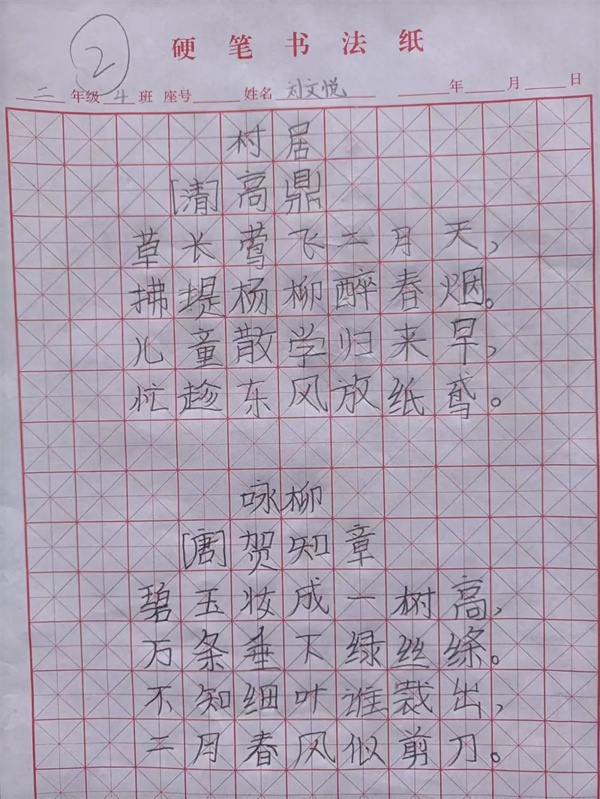 ②
硬笔书法纸
二年级 4班 座号 姓名 刘文悦 年 月 日
村居
[清]高鼎
草长莺飞二月天,
拂堤杨柳醉春烟。
儿童散学归来早,
忙趁东风放纸鸢。
咏柳
[唐]贺知章
碧玉妆成一树高,
万条垂下绿丝绦。
不知细叶谁裁出,
二月春风似剪刀。